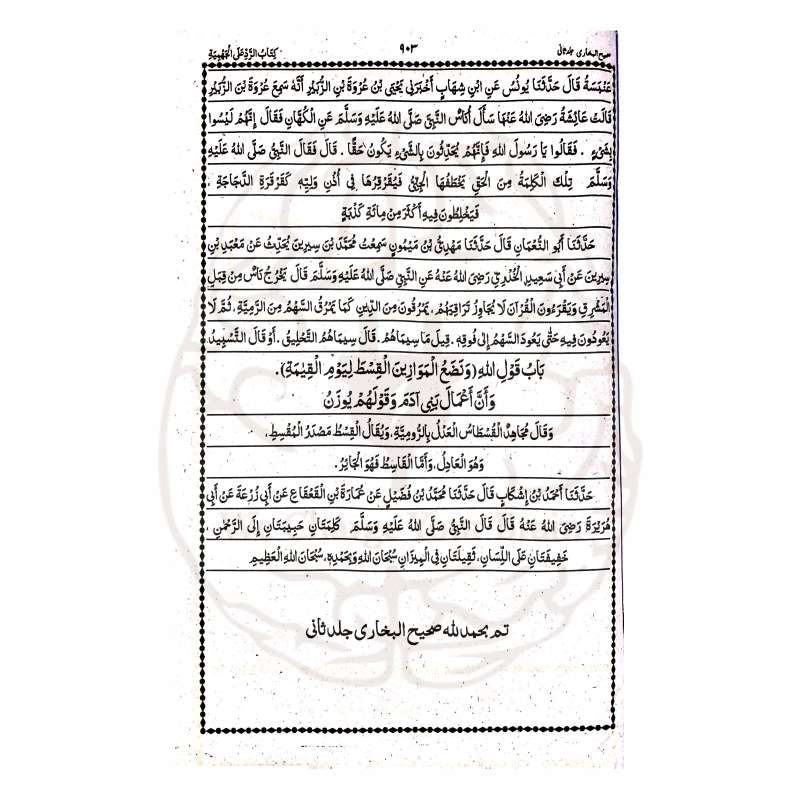 صحيح البخاري جلد ثانی ٩٠٣ كِتَابُ الرَّدِّ عَلَى الْجَهْمِيَّةِ
عَنْبَسَةُ قَالَ حَدَّثَنَا يُونُسُ عَنِ ابْنِ شِهَابٍ أَخْبَرَنِي يَحْيَى بْنُ عُرْوَةَ بْنِ الزُّبَيْرِ أَنَّهُ سَمِعَ عُرْوَةَ بْنَ الزُّبَيْرِ
قَالَتْ عَائِشَةُ رَضِيَ اللهُ عَنْهَا سَأَلَ أُنَاسٌ النَّبِيَّ صَلَّى اللهُ عَلَيْهِ وَسَلَّمَ عَنِ الْكُهَّانِ فَقَالَ إِنَّهُمْ لَيْسُوا
بِشَيْءٍ . فَقَالُوا يَا رَسُولَ اللهِ فَإِنَّهُمْ يُحَدِّثُونَ بِالشَّيْءِ يَكُونُ حَقًّا . قَالَ فَقَالَ النَّبِيُّ صَلَّى اللهُ عَلَيْهِ
وَسَلَّمَ تِلْكَ الْكَلِمَةُ مِنَ الْحَقِّ يَخْطَفُهَا الْجِنِّيُّ فَيُقَرْقِرُهَا فِي أُذُنِ وَلِيِّهِ كَقَرْقَرَةِ الدَّجَاجَةِ .
فَيَخْلِطُونَ فِيهِ أَكْثَرَ مِنْ مِائَةِ كَذْبَةٍ
حَدَّثَنَا أَبُو النُّعْمَانِ قَالَ حَدَّثَنَا مَهْدِيُّ بْنُ مَيْمُونٍ سَمِعْتُ مُحَمَّدَ بْنَ سِيرِينَ يُحَدِّثُ عَنْ مَعْبَدِ بْنِ
سِيرِينَ عَنْ أَبِي سَعِيدٍ الْخُدْرِيِّ رَضِيَ اللهُ عَنْهُ عَنِ النَّبِيِّ صَلَّى اللهُ عَلَيْهِ وَسَلَّمَ قَالَ يَخْرُجُ نَاسٌ مِنْ قِبَلِ
الْمَشْرِقِ وَيَقْرَءُونَ الْقُرْآنَ لَا يُجَاوِزُ تَرَاقِيَهُمْ، يَمْرُقُونَ مِنَ الدِّينِ كَمَا يَمْرُقُ السَّهْمُ مِنَ الرَّمِيَّةِ، ثُمَّ لَا
يَعُودُونَ فِيهِ حَتَّى يَعُودَ السَّهْمُ إِلَى فُوقِهِ. قِيلَ مَا سِيمَاهُمْ. قَالَ سِيمَاهُمُ التَّحْلِيقُ. أَوْ قَالَ التَّسْبِيدُ
بَابُ قَوْلِ اللهِ (وَنَضَعُ الْمَوَازِينَ الْقِسْطَ لِيَوْمِ الْقِيٰمَةِ).
وَأَنَّ أَعْمَالَ بَنِي آدَمَ وَقَوْلَهُمْ يُوزَنُ
وَقَالَ مُجَاهِدٌ الْقُسْطَاسُ الْعَدْلُ بِالرُّومِيَّةِ، وَيُقَالُ الْقِسْطُ مَصْدَرُ الْمُقْسِطِ،
وَهُوَ الْعَادِلُ، وَأَمَّا الْقَاسِطُ فَهُوَ الْجَائِرُ .
حَدَّثَنَا أَحْمَدُ بْنُ إِشْكَابٍ قَالَ حَدَّثَنَا مُحَمَّدُ بْنُ فُضَيْلٍ عَنْ عُمَارَةَ بْنِ الْقَعْقَاعِ عَنْ أَبِي زُرْعَةَ عَنْ أَبِي
هُرَيْرَةَ رَضِيَ اللهُ عَنْهُ قَالَ قَالَ النَّبِيُّ صَلَّى اللهُ عَلَيْهِ وَسَلَّمَ كَلِمَتَانِ حَبِيبَتَانِ إِلَى الرَّحْمٰنِ،
خَفِيفَتَانِ عَلَى اللِّسَانِ، ثَقِيلَتَانِ فِي الْمِيزَانِ سُبْحَانَ اللهِ وَبِحَمْدِهِ، سُبْحَانَ اللهِ الْعَظِيمِ
تم بحمد لله صحيح البخاری جلد ثانی